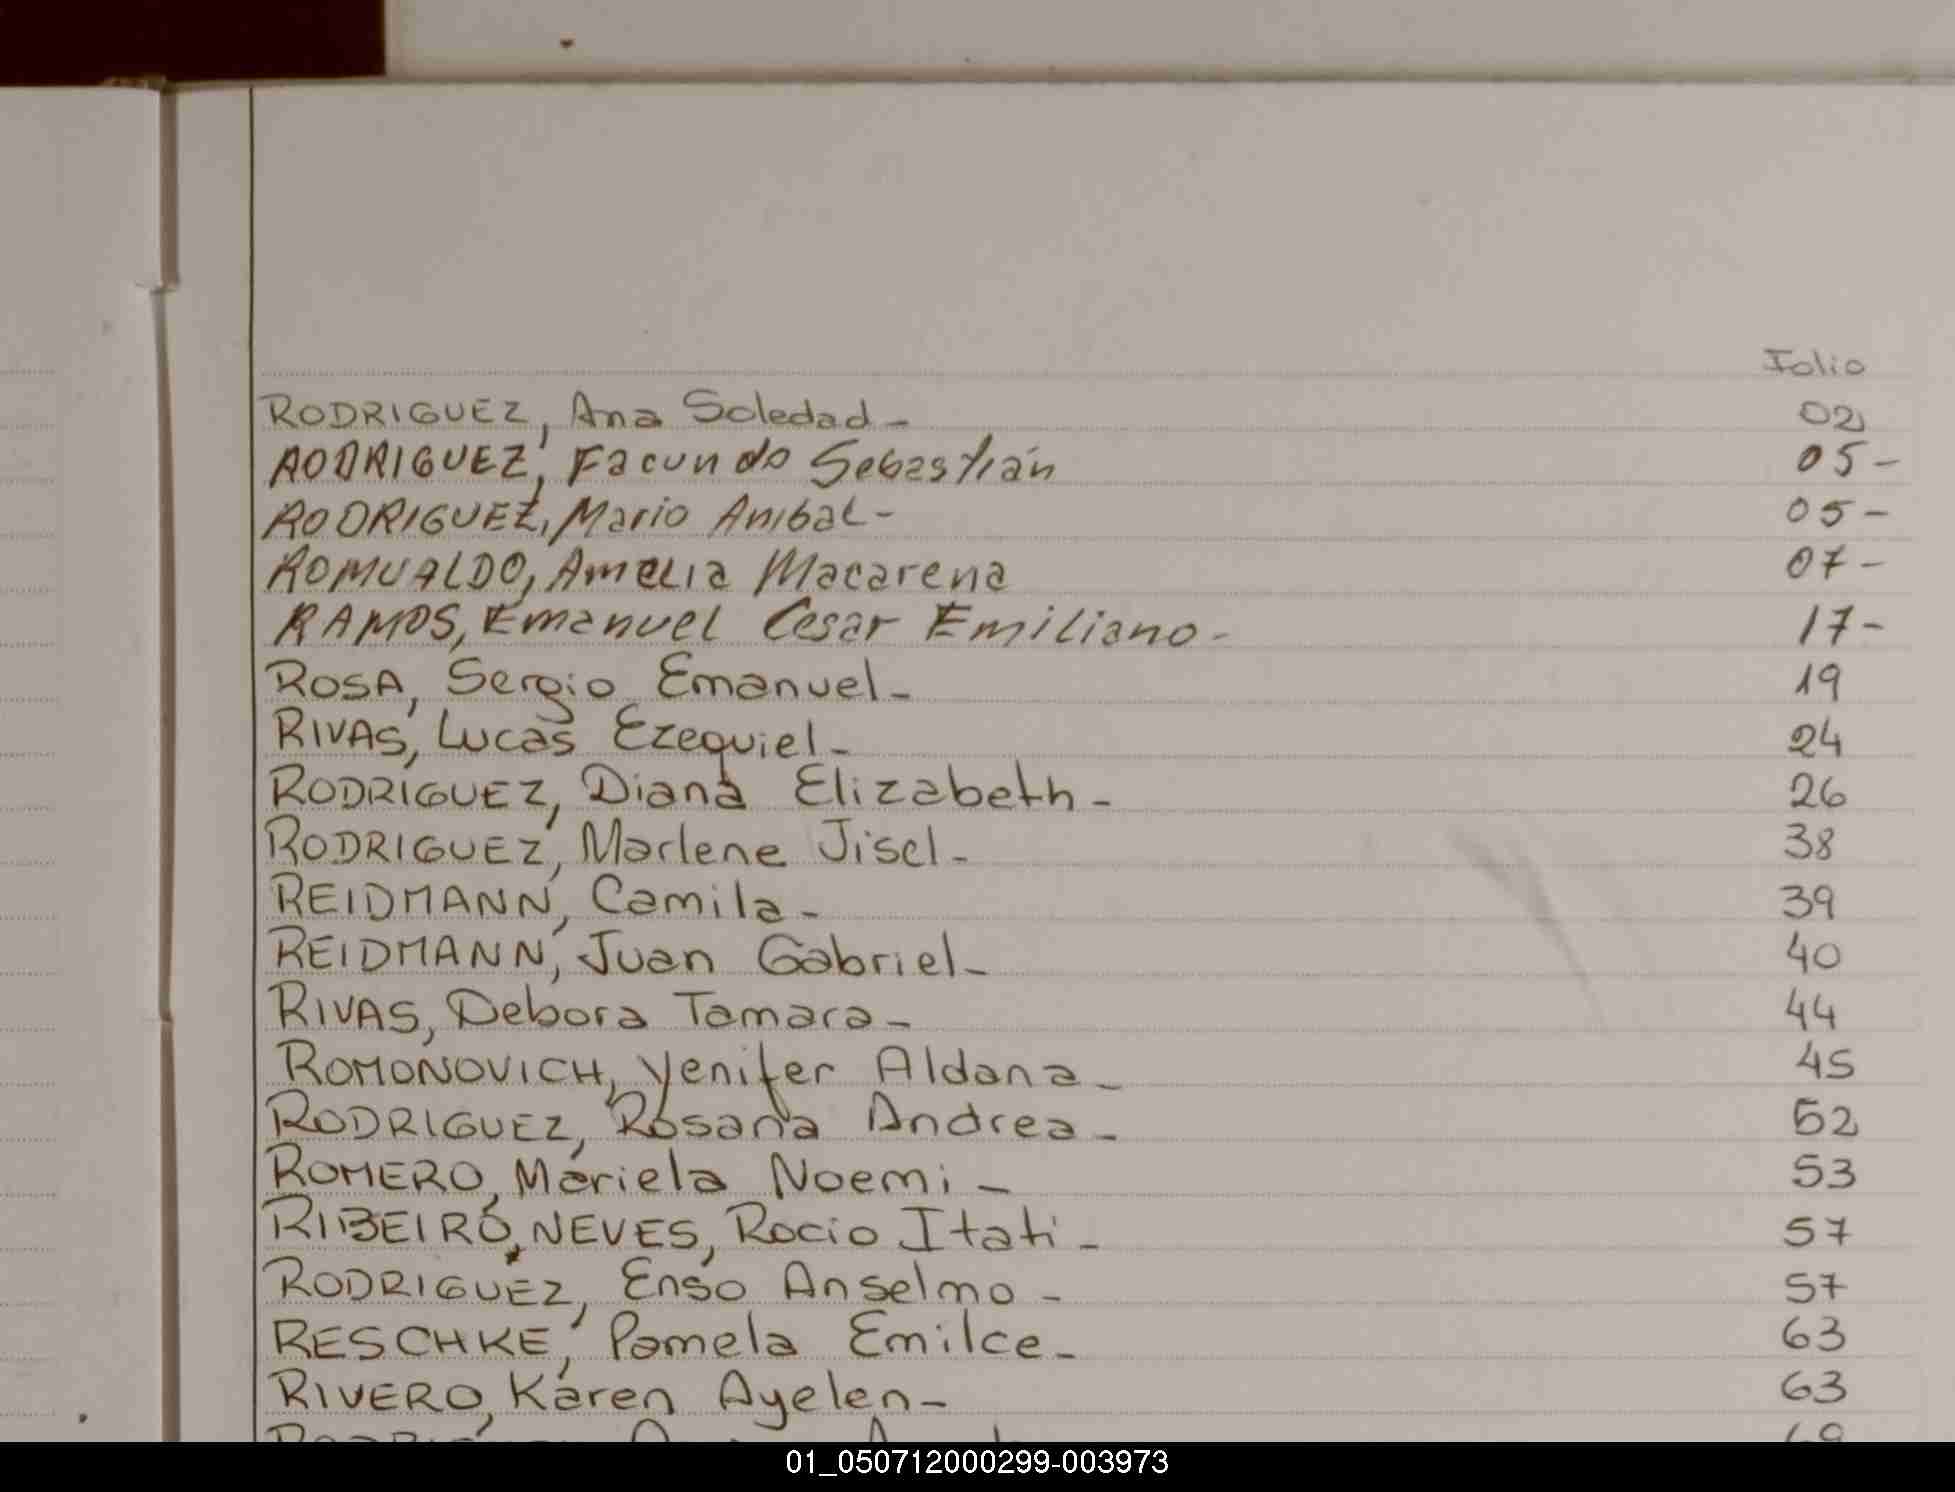 Folio
RODRIGUEZ, Ana Soledad - 02
RODRIGUEZ, Facundo Sebastián 05-
RODRIGUEZ, Mario Anibal - 05-
ROMUALDO, Amelia Macarena 07-
RAMOS, Emanuel Cesar Emiliano - 17-
ROSA, Sergio Emanuel - 19
RIVAS, Lucas Ezequiel - 24
RODRIGUEZ, Diana Elizabeth - 26
RODRIGUEZ, Marlene Jisel - 38
REIDMANN, Camila - 39
REIDMANN, Juan Gabriel - 40
RIVAS, Debora Tamara - 44
ROMONOVICH, Yenifer Aldana - 45
RODRIGUEZ, Rosana Andrea - 52
ROMERO, Mariela Noemi - 53
RIBEIRO, NEVES, Rocio Itati - 57
RODRIGUEZ, Enso Anselmo - 57
RESCHKE, Pamela Emilce - 63
RIVERO, Karen Ayelen - 63
01_050712000299-003973